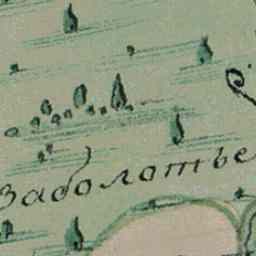 Заболотье